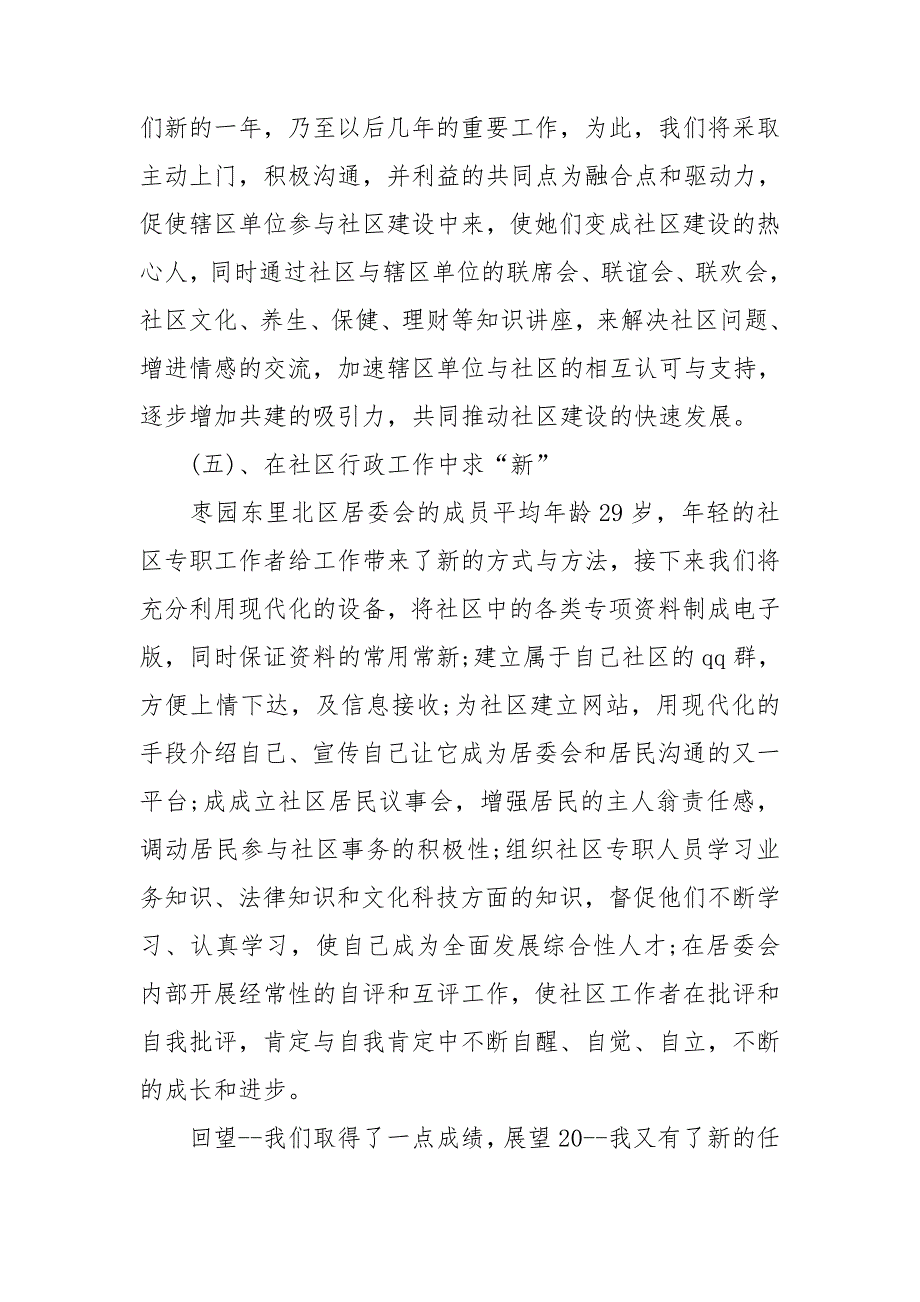 们新的一年，乃至以后几年的重要工作，为此，我们将采取
主动上门，积极沟通，并利益的共同点为融合点和驱动力，
促使辖区单位参与社区建设中来，使她们变成社区建设的热
心人，同时通过社区与辖区单位的联席会、联谊会、联欢会，
社区文化、养生、保健、理财等知识讲座，来解决社区问题、
增进情感的交流，加速辖区单位与社区的相互认可与支持，
逐步增加共建的吸引力，共同推动社区建设的快速发展。
(五)、在社区行政工作中求“新”
枣园东里北区居委会的成员平均年龄 29 岁，年轻的社
区专职工作者给工作带来了新的方式与方法，接下来我们将
充分利用现代化的设备，将社区中的各类专项资料制成电子
版，同时保证资料的常用常新;建立属于自己社区的 qq 群，
方便上情下达，及信息接收;为社区建立网站，用现代化的
手段介绍自己、宣传自己让它成为居委会和居民沟通的又一
平台;成成立社区居民议事会，增强居民的主人翁责任感，
调动居民参与社区事务的积极性;组织社区专职人员学习业
务知识、法律知识和文化科技方面的知识，督促他们不断学
习、认真学习，使自己成为全面发展综合性人才;在居委会
内部开展经常性的自评和互评工作，使社区工作者在批评和
自我批评，肯定与自我肯定中不断自醒、自觉、自立，不断
的成长和进步。
回望--我们取得了一点成绩，展望 20--我又有了新的任